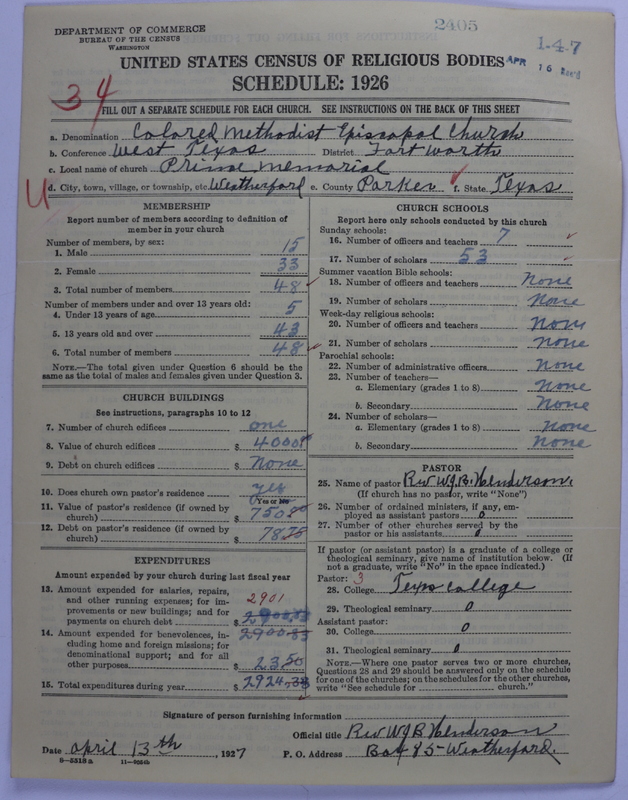 DEPARTMENT OF COMMERCE
BUREAU OF THE CENSUS
WASHINGTON
2405
1-4-7
APR 16 Rec'd
UNITED STATES CENSUS OF RELIGIOUS BODIES
SCHEDULE: 1926
34
FILL OUT A SEPARATE SCHEDULE FOR EACH CHURCH. SEE INSTRUCTIONS ON THE BACK OF THIS SHEET
a. Denomination Colored Methodist Episcopal Church
b. Conference West Texas District Fort Worth
c. Local name of church Prime Memorial
U
d. City, town, village, or township, etc. Weatherford e. County Parker f. State Texas
MEMBERSHIP
Report number of members according to definition of
member in your church
Number of members, by sex:
1. Male 15
2. Female 33
3. Total number of members 48
Number of members under and over 13 years old:
4. Under 13 years of age 5
5. 13 years old and over 43
6. Total number of members 48
NOTE.—The total given under Question 6 should be
same as the total of males and females given under Question 3.
CHURCH BUILDINGS
See instructions, paragraphs 10 to 12
7. Number of church edifices one
8. Value of church edifices $ 4000
9. Debt on church edifices $ None
10. Does church own pastor's residence yes
Yes or No
11. Value of pastor's residence (if owned by
church) $ 750
12. Debt on pastor's residence (if owned by
church) $ 78.75
EXPENDITURES
Amount expended by your church during last fiscal year
13. Amount expended for salaries, repairs,
and other running expenses; for im-
provements or new buildings; and for
payments on church debt $
2901
14. Amount expended for benevolences, in-
cluding home and foreign missions; for
denominational support; and for all
other purposes $ 23.50
2900.83
15. Total expenditures during year $ 2924.33
CHURCH SCHOOLS
Report here only schools conducted by this church
Sunday schools:
16. Number of officers and teachers 7
17. Number of scholars 53
Summer vacation Bible schools:
18. Number of officers and teachers None
19. Number of scholars None
Week-day religious schools:
20. Number of officers and teachers None
21. Number of scholars None
Parochial schools:
22. Number of administrative officers None
23. Number of teachers—
a. Elementary (grades 1 to 8) None
b. Secondary None
24. Number of scholars—
a. Elementary (grades 1 to 8) None
b. Secondary None
PASTOR
25. Name of pastor Rev W.J.B. Henderson
(If church has no pastor, write "None")
26. Number of ordained ministers, if any, em-
ployed as assistant pastors 0
27. Number of other churches served by the
pastor or his assistants 0
If pastor (or assistant pastor) is a graduate of a college or
theological seminary, give name of institution below. (If
not a graduate, write "No" in the space indicated.)
Pastor: 3
28. College Texas College
29. Theological seminary 0
Assistant pastor:
30. College 0
31. Theological seminary 0
NOTE.—Where one pastor serves two or more churches,
Questions 28 and 29 should be answered only on the schedule
for one of the churches; on the schedules for the other churches,
write "See schedule for church."
Signature of person furnishing information
Official title Rev WJB Henderson
Date April 13th 1927 P. O. Address Box 85-Weatherford.
8-5318 a